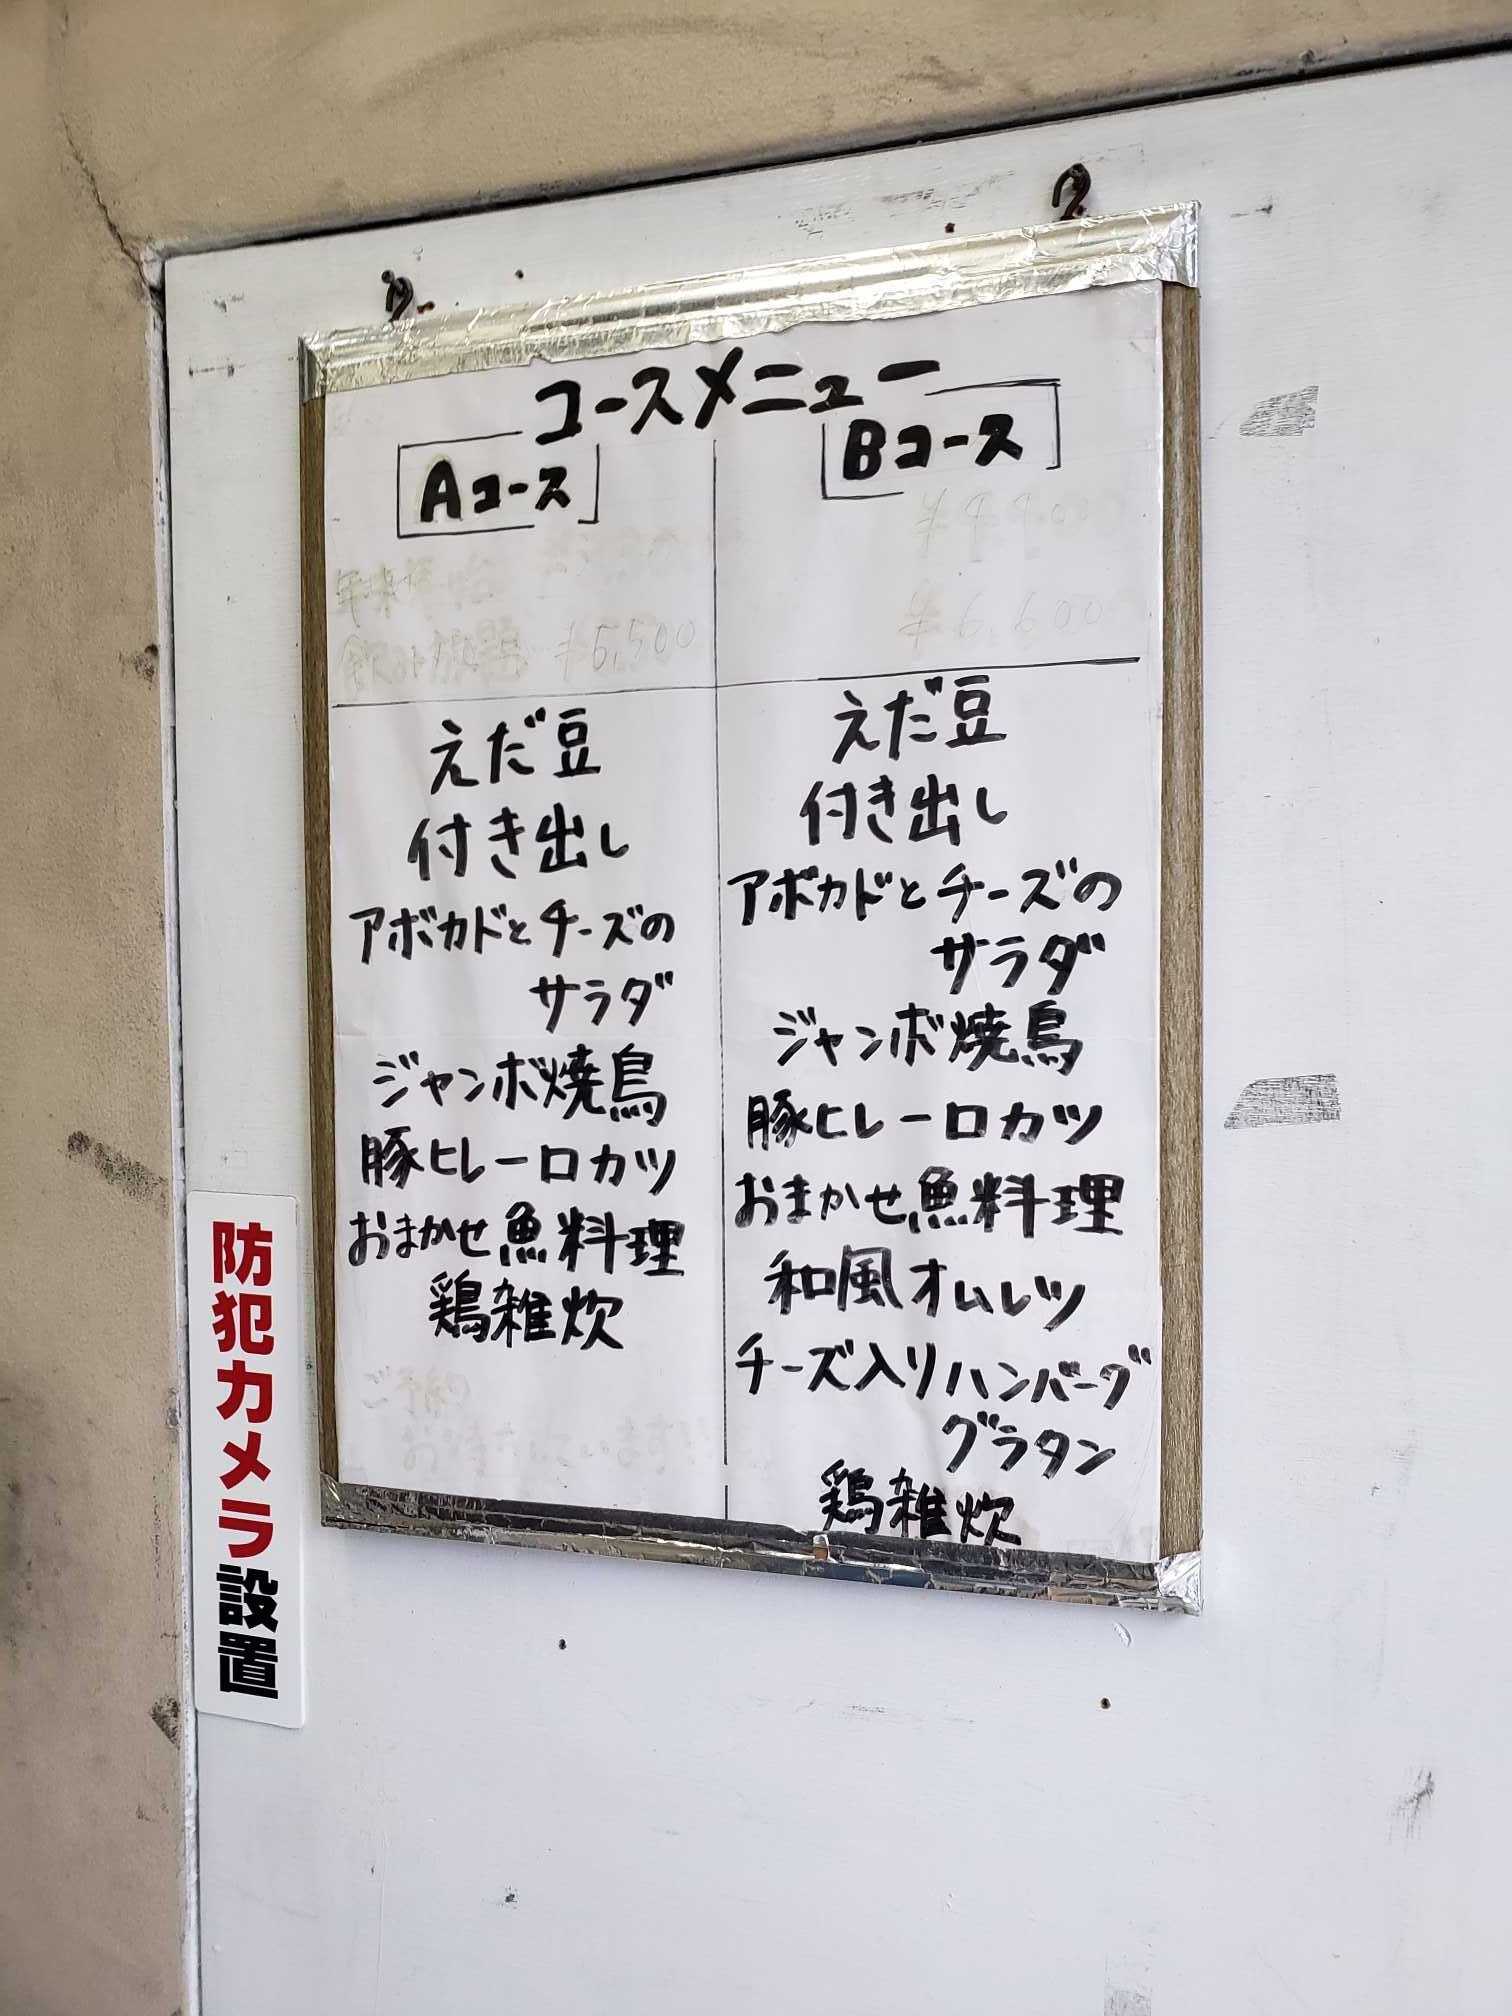 コースメニュー
Aコース
飲み放題 ¥5,500
えだ豆
付き出し
アボカドとチーズの
サラダ
ジャンボ焼鳥
豚ヒレ一口カツ
おまかせ魚料理
鶏雑炊
ご予約
お待ちしています
Bコース
¥6,600
えだ豆
付き出し
アボカドとチーズの
サラダ
ジャンボ焼鳥
豚ヒレ一口カツ
おまかせ魚料理
和風オムレツ
チーズ入りハンバーグ
グラタン
鶏雑炊
防犯カメラ設置